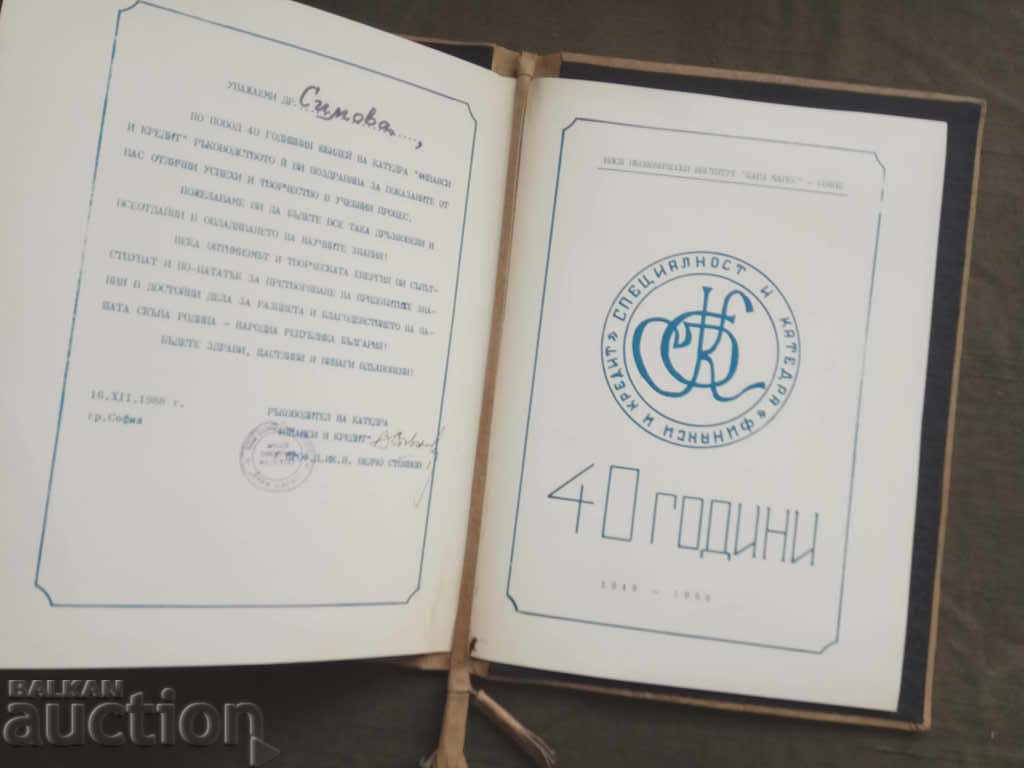 УВАЖАЕМИ ДР. Симова,
ПО ПОВОД 40 ГОДИШНИЯ ЮБИЛЕЙ НА КАТЕДРА "ФИНАНСИ
И КРЕДИТ" РЪКОВОДСТВОТО Й ВИ ПОЗДРАВЯВА ЗА ПОКАЗАНИТЕ ОТ
ВАС ОТЛИЧНИ УСПЕХИ И ТВОРЧЕСТВО В УЧЕБНИЯ ПРОЦЕС.
ПОЖЕЛАВАМЕ ВИ ДА БЪДЕТЕ ВСЕ ТАКА ДРЪЗНОВЕНИ И
ВСЕОТДАЙНИ В ОВЛАДЯВАНЕТО НА НАУЧНИТЕ ЗНАНИЯ!
НЕКА ОПТИМИЗМЪТ И ТВОРЧЕСКАТА ЕНЕРГИЯ ВИ СЪПЪТ-
СТВУВАТ И ПО-НАТАТЪК ЗА ПРЕТВОРЯВАНЕ НА ПРИДОБИТИТЕ ЗНА-
НИЯ В ДОСТОЙНИ ДЕЛА ЗА РАЗЦВЕТА И БЛАГОДЕНСТВИЕТО НА НА-
ШАТА СКЪПА РОДИНА - НАРОДНА РЕПУБЛИКА БЪЛГАРИЯ!
БЪДЕТЕ ЗДРАВИ, ЩАСТЛИВИ И ВИНАГИ ВДЪХНОВЕНИ!
16.XII.1988 г.
гр.София
РЪКОВОДИТЕЛ НА КАТЕДРА
"ФИНАНСИ И КРЕДИТ"
ПРОФ.Д.ИК.Н. ВЕЛЧО СТОЯНОВ
ВИСШ ИКОНОМИЧЕСКИ ИНСТИТУТ "КАРЛ МАРКС" - СОФИЯ
СПЕЦИАЛНОСТ И КАТЕДРА "ФИНАНСИ И КРЕДИТ"
40 ГОДИНИ
1948 - 1988
BALKAN
auction